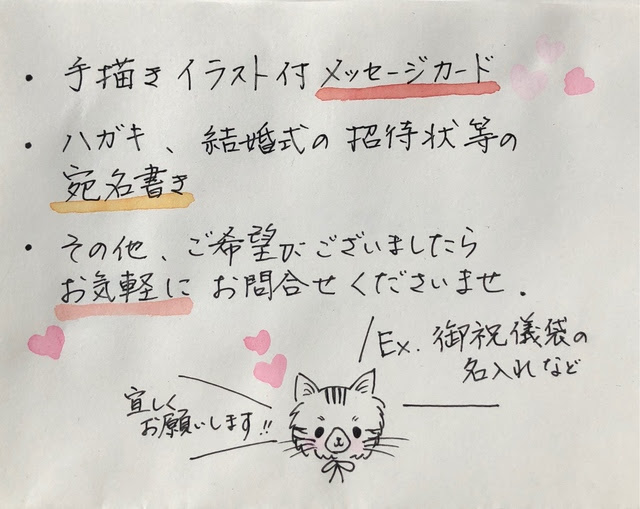 ・手描きイラスト付メッセージカード
・ハガキ、結婚式の招待状等の
宛名書き
・その他、ご希望がございましたら
お気軽にお問合せくださいませ.
Ex. 御祝儀袋の
名入れなど
宜しく
お願いします!!